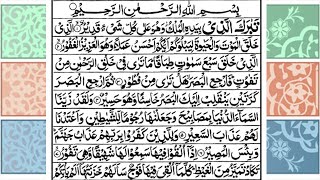 بِسْمِ اللَّهِ الرَّحْمَٰنِ الرَّحِيمِ
تَبَٰرَكَ الَّذِي بِيَدِهِ الْمُلْكُ وَهُوَ عَلَىٰ كُلِّ شَيْءٍ قَدِيرٌ الَّذِي
خَلَقَ الْمَوْتَ وَالْحَيَوٰةَ لِيَبْلُوَكُمْ أَيُّكُمْ أَحْسَنُ عَمَلًا وَهُوَ الْعَزِيزُ الْغَفُورُ
الَّذِي خَلَقَ سَبْعَ سَمَٰوَٰتٍ طِبَاقًا مَا تَرَىٰ فِي خَلْقِ الرَّحْمَٰنِ مِنْ
تَفَٰوُتٍ فَارْجِعِ الْبَصَرَ هَلْ تَرَىٰ مِنْ فُطُورٍ ثُمَّ ارْجِعِ الْبَصَرَ
كَرَّتَيْنِ يَنْقَلِبْ إِلَيْكَ الْبَصَرُ خَاسِئًا وَهُوَ حَسِيرٌ وَلَقَدْ زَيَّنَّا
السَّمَاءَ الدُّنْيَا بِمَصَٰبِيحَ وَجَعَلْنَٰهَا رُجُومًا لِلشَّيَٰطِينِ وَأَعْتَدْنَا
لَهُمْ عَذَابَ السَّعِيرِ وَلِلَّذِينَ كَفَرُوا بِرَبِّهِمْ عَذَابُ جَهَنَّمَ
وَبِئْسَ الْمَصِيرُ إِذَا أُلْقُوا فِيهَا سَمِعُوا لَهَا شَهِيقًا وَهِيَ تَفُورُ
تَكَادُ تَمَيَّزُ مِنَ الْغَيْظِ كُلَّمَا أُلْقِيَ فِيهَا فَوْجٌ سَأَلَهُمْ خَزَنَتُهَا أَلَمْ يَأْتِكُمْ